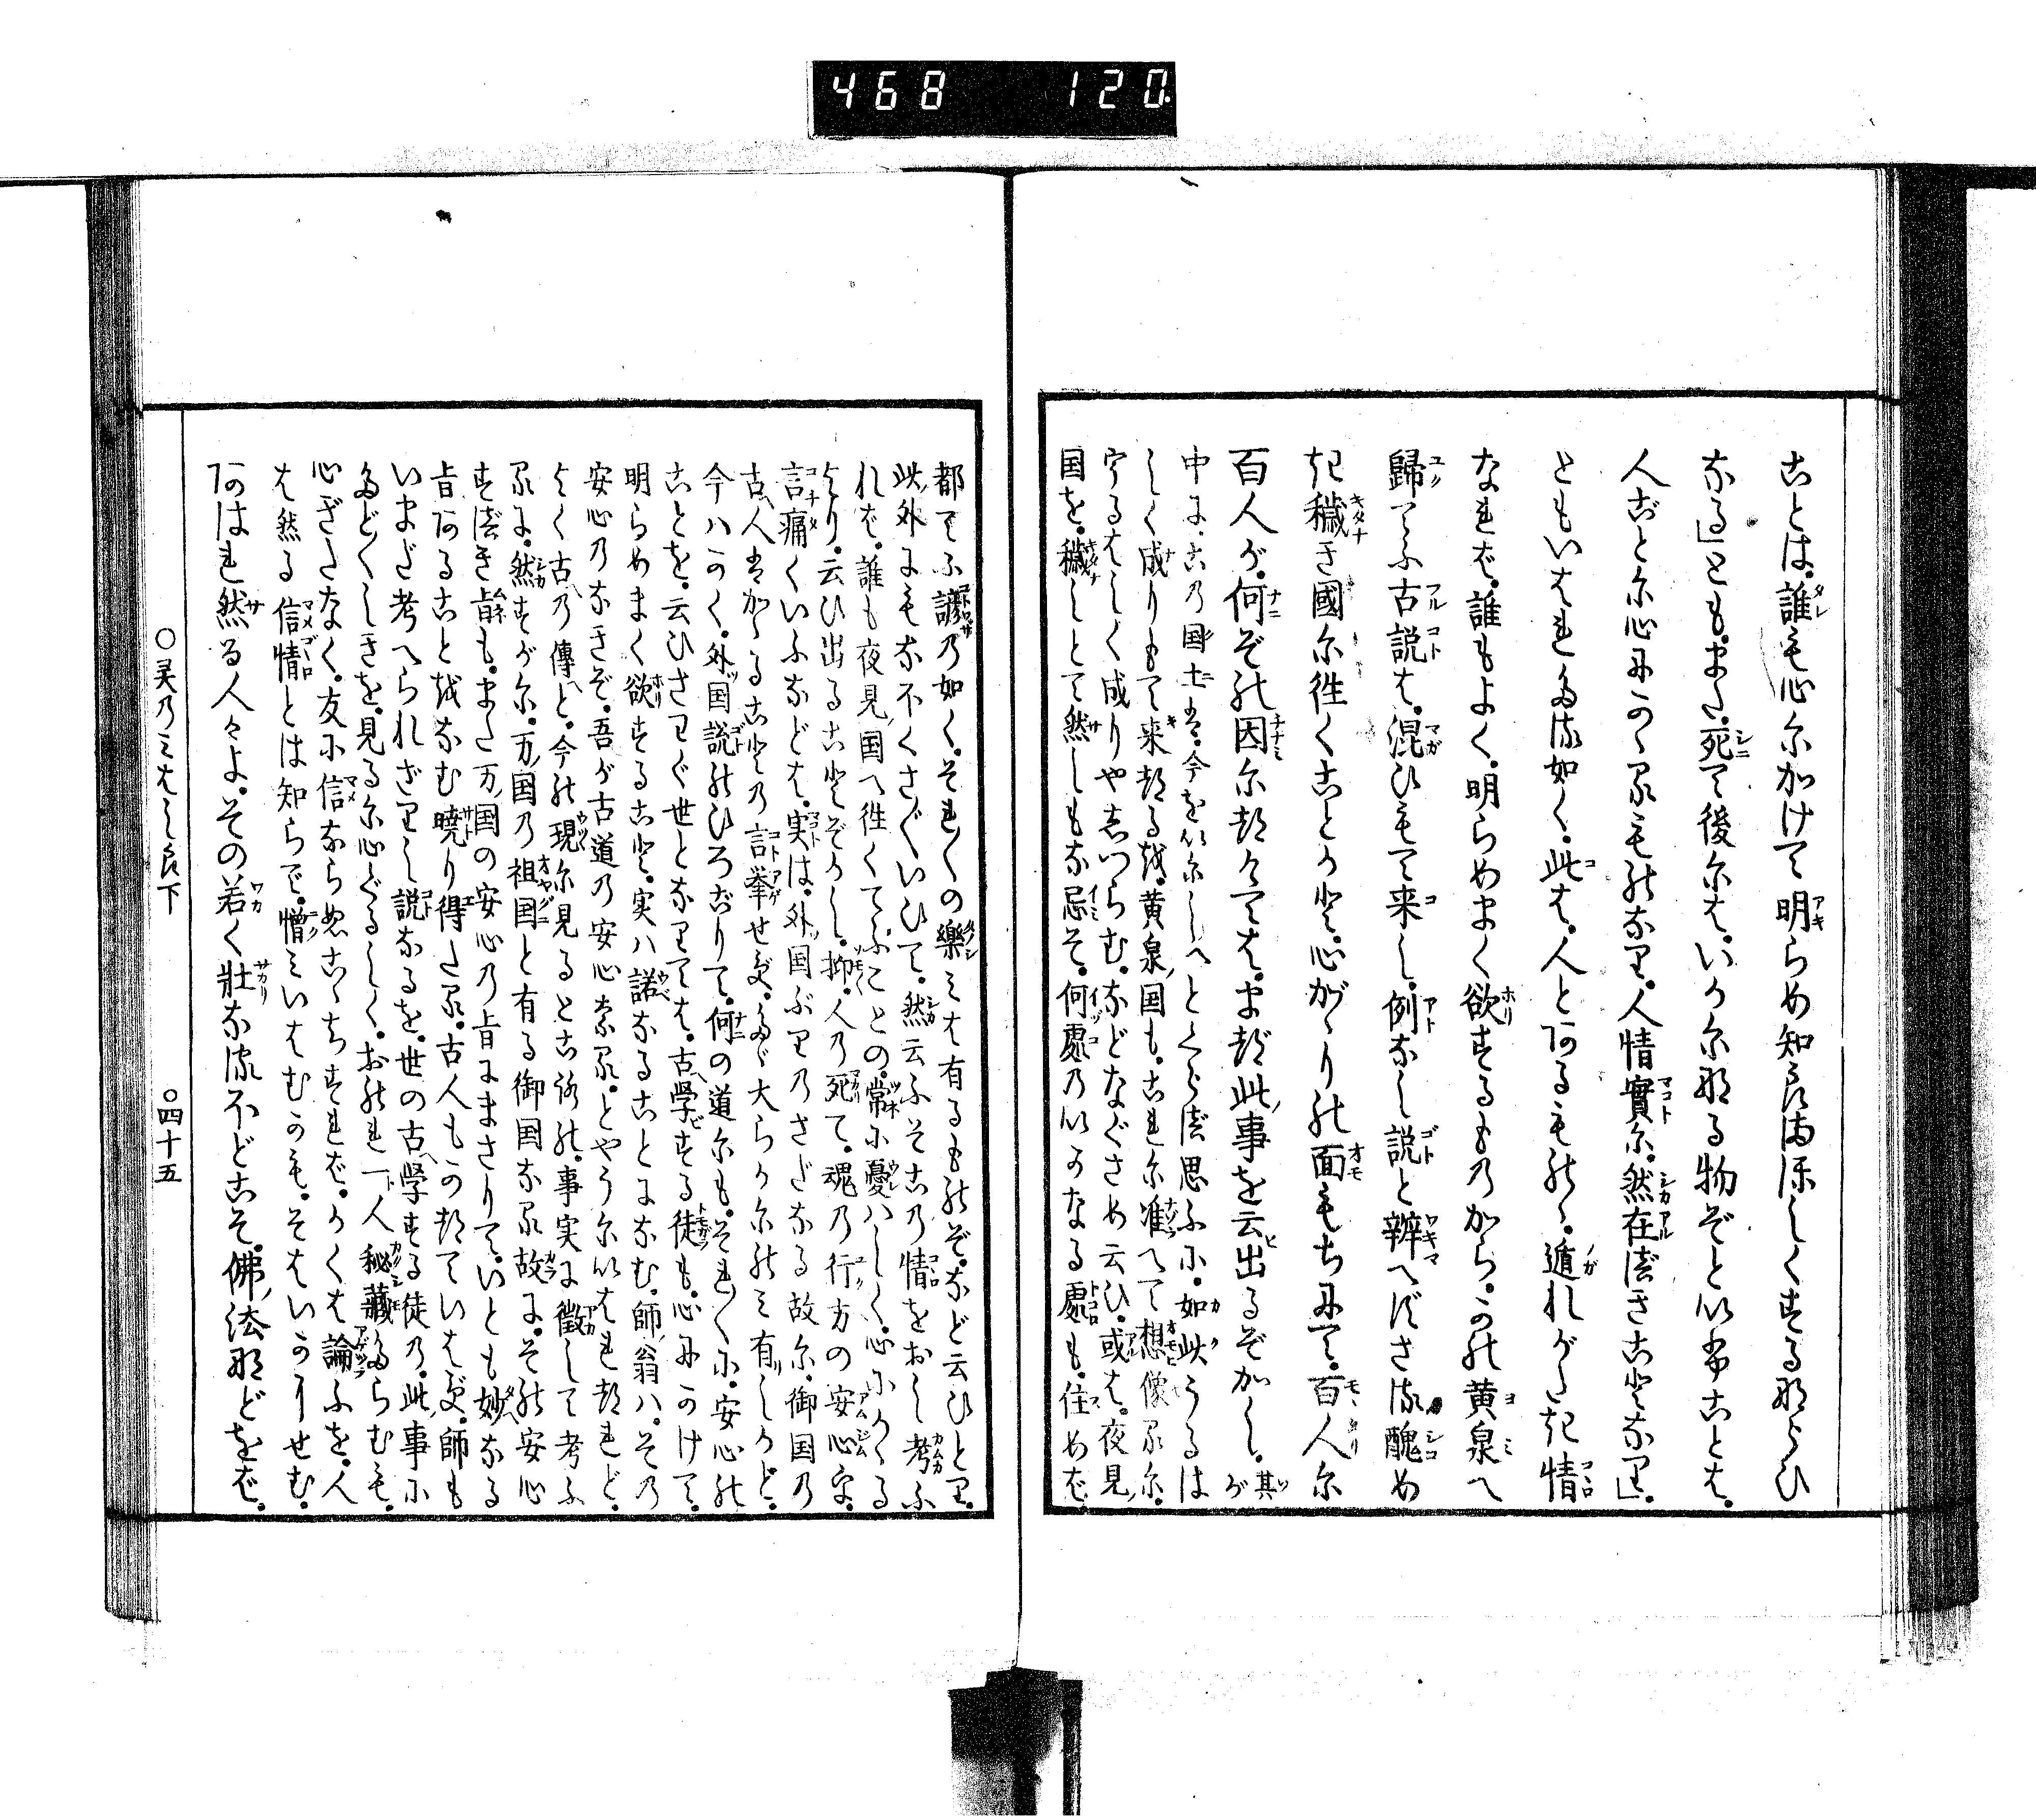 468 120
ことは。誰も心にかけて明らめ知らまほしくする那らひ
なる」とも。また。死て後には。いかに那る物ぞといふことは。
人ごとに心にかゝるものなり。人情實に。然在べきことなり」。
ともいはれたる如く。此は。人とあるものゝ。遁れがたき情
なれば。誰もよく。明らめまく欲するものから。かの黄泉へ
歸てふ古説は。混ひもて来し。例なし説と辨へずさる醜め
き穢き國に徃くことかと。心がゝりの面もちにて。百人に
百人が。何ぞの因につけては。まづ此事を云出るぞかし。其が
中に。この国土は。今をいにしへとくらべ思ふに。如此うるは
しく成りもて来つるを。黄泉国も。これに准へて想像るに。
うるはしく成りや志つらむ。などなぐさめ云ひ。或は。夜見
国を。穢しとて然しもな忌そ。何處のいかなる處も。住めば
都てふ諺の如く。それ〳〵の樂みは有るものぞ。など云ひとり。
此外にもなほくさ〴〵いひて。然云ふそこの情をおし考ふ
れば。誰も夜見国へ徃くてふことの。常に憂はしく。心にかゝる
より。云ひ出ることぞかし。抑。人の死て。魂の行方の安心を。
言痛くいふなどは。実は。外国ぶりのさだなる故に。御国の
古人はかゝることの言擧せず。たゞ大らかにのみ有しかど。
今ハかく。外国説のひろごりて。何の道にも。それ〳〵に。安心の
ことを。云ひさわぐ世となりては。古學する徒も。心にかけて。
明らめまく欲することゝ。実ハ諾なることになむ。師翁ハ。その
安心のなきぞ。吾が古道の安心なる。とやうにいはれつれど。
よく古の傳へと。今の現に見るところの。事実に徴して考ふ
るに。然すがに。万国の祖国と有る御国なる故に。その安心
すべき旨も。また万国の安心の旨にまさりて。いとも妙なる
旨あることをなむ曉り得たる。古人もかつていはず。師も
いまだ考へられざりし説なるを。世の古学する徒の。此事に
たど〳〵しきを。見るに心ぐるしく。おのれ一人秘藏たらむも。
心ぎたなく。友に信ならぬこゝちすれば。かくは論ふを。人
は然る信情とは知らで。憎みいはむかも。そはいかにせむ。
あはれ然る人々よ。その若く壯なるほどこそ。佛法那どをば。
○㚑乃みはしら下 ○四十五